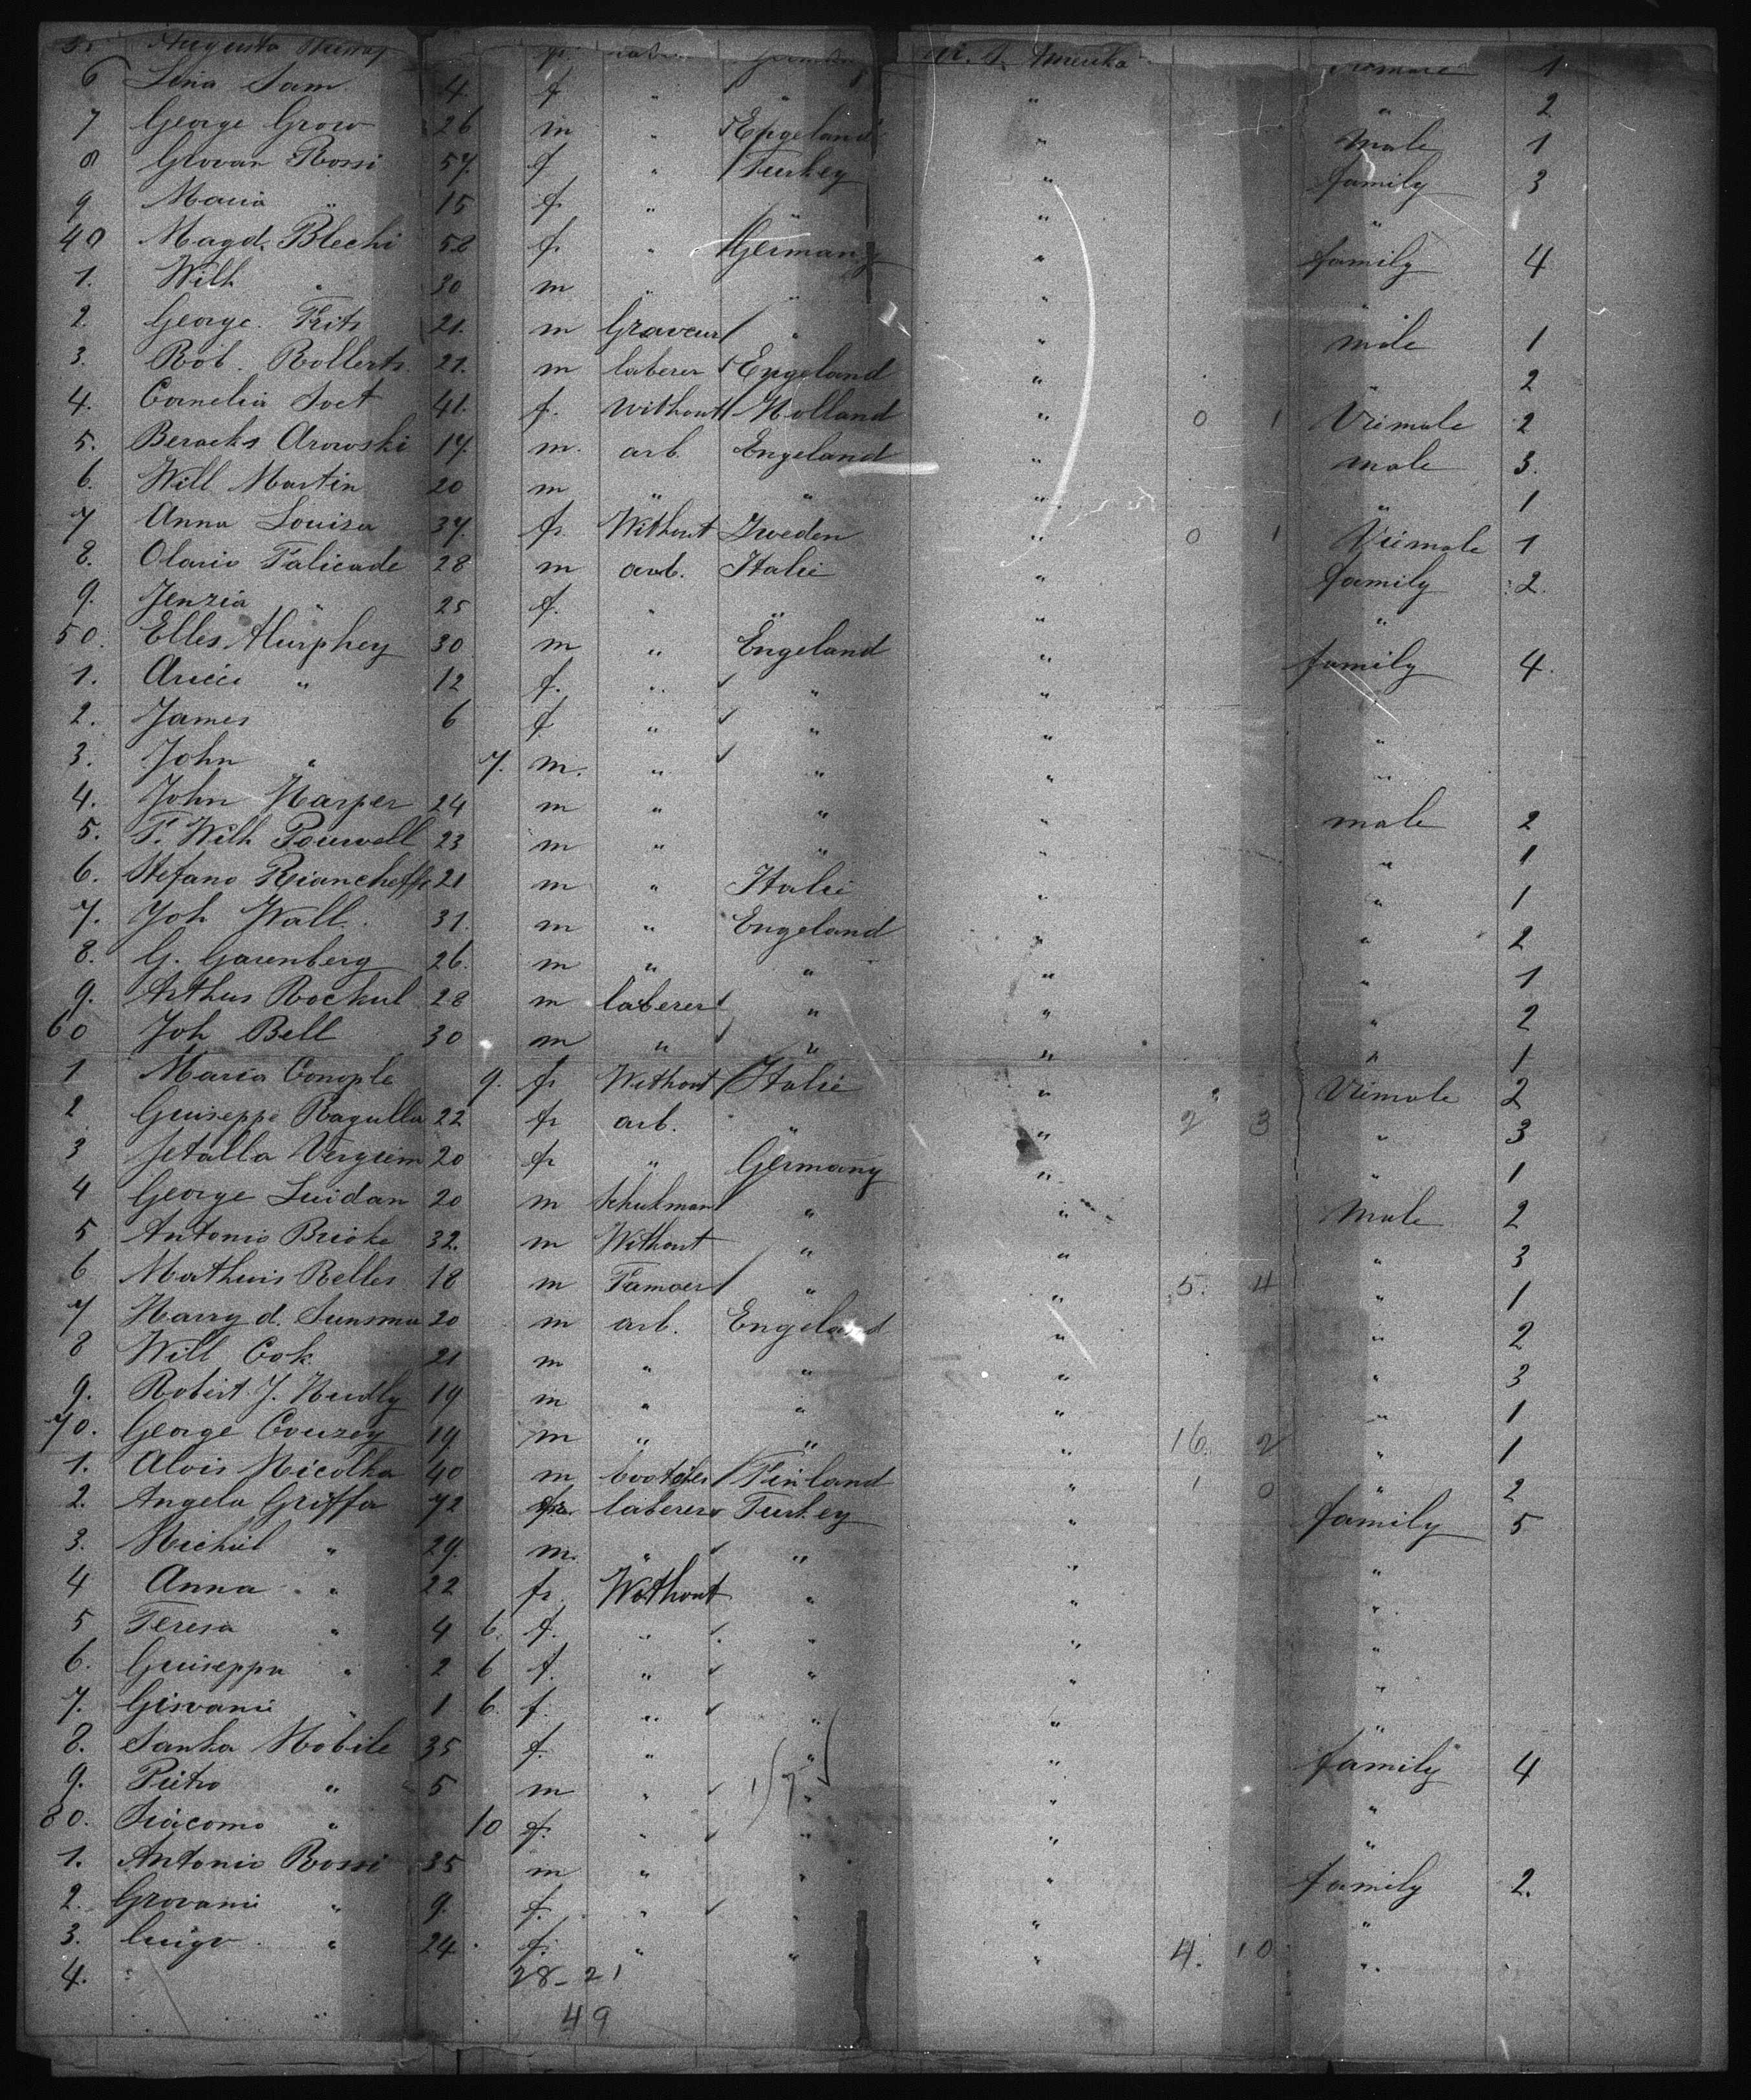 5. Augusta fr. N. S. Amerika 1
6 Lina Sam 4. f " " " " 2
7 George Grow 26 m " Engeland " Male 1
8 Giovan Rossi 57. f " Turkey " family 3
9 Maria " 15 f. " " " "
40 Magd. Blechi 58 f. " Germany " family 4
1. Wilh " 20 m " " " "
2. George. Frits 21. m Graveur " " male 1
3. Rob. Rollerts. 21. m laberer Engeland " " 2
4. Cornelia Soet 41. f. without Holland " 0 1 Vrimale 2
5. Beracks Arowski 17. m. arb. Engeland " male 3.
6. Will Martin 20 m " " " " 1
7 Anna Louisa 37. fr. Without Sweden " 0 1 Vrimale 1
8. Olario Falicade 28 m arb. Italie " family 2.
9. Jenzia " 25 f. " " " "
50. Elles Murphey 30 m " Engeland " family 4.
1. " 12 f. " " " "
2. James 6 f. " " " "
3. John " 7. m. " " " "
4. John Harper 24 m " " " male 2
5. F. Wilh Pouwell 23 m " " " " 1
6. Stefano 21 m " Italie " " 1
7. Joh Wall. 31. m " Engeland " " 2
8. G. Garenberg 26. m " " " " 1
9. Arthus Rockul 28 m laberer " " " 2
60 Joh Bell 30 m " " " " 1
1 Maria Conople 9. fr Without Italie " " Vrimale 2
2 Guiseppe Ragulla 22 fr arb. " " 2 3 " 3
3 Jetalla 20 fr " Germany " " 1
4 George Luidan 20 m Schukman " " Male 2
5 Antonio Brioke 32. m Without " " " 3
6 Mathuis Relles 18 m Famoer " " 5. 4 " 1
7 Harry d. Sunsma 20 m arb. Engeland " " 2
8 Will Cok 21 m " " " " 3
9. Robert J. Hudly 19 m " " " " 1
70. George Couzey 19 m " " " 16. 2 " 1
1. Alois Nicolka 40 m Finland " 1 0 " 2
2. Angela Griffa 72 fr. laberer Turkey " family 5
3. Michiel " 29. m. " " " "
4 Anna " 22 fr. Without " " "
5 Teresa " 4 6. f. " " " "
6. Guiseppa " 2 6 f. " " " "
7. Giovanni " 1 6. f. " " " "
8. Santa Nobile 35 f. " " " family 4
9. Pietro " 5 m " " " "
80. Siacomo " 10 f. " " " "
1. Antonio Rossi 35 m " " " family 2.
2. Grovanni " 9. f. " " " "
3. Luigo " 24 f. " " " 4. 10 "
4. 28-21
49